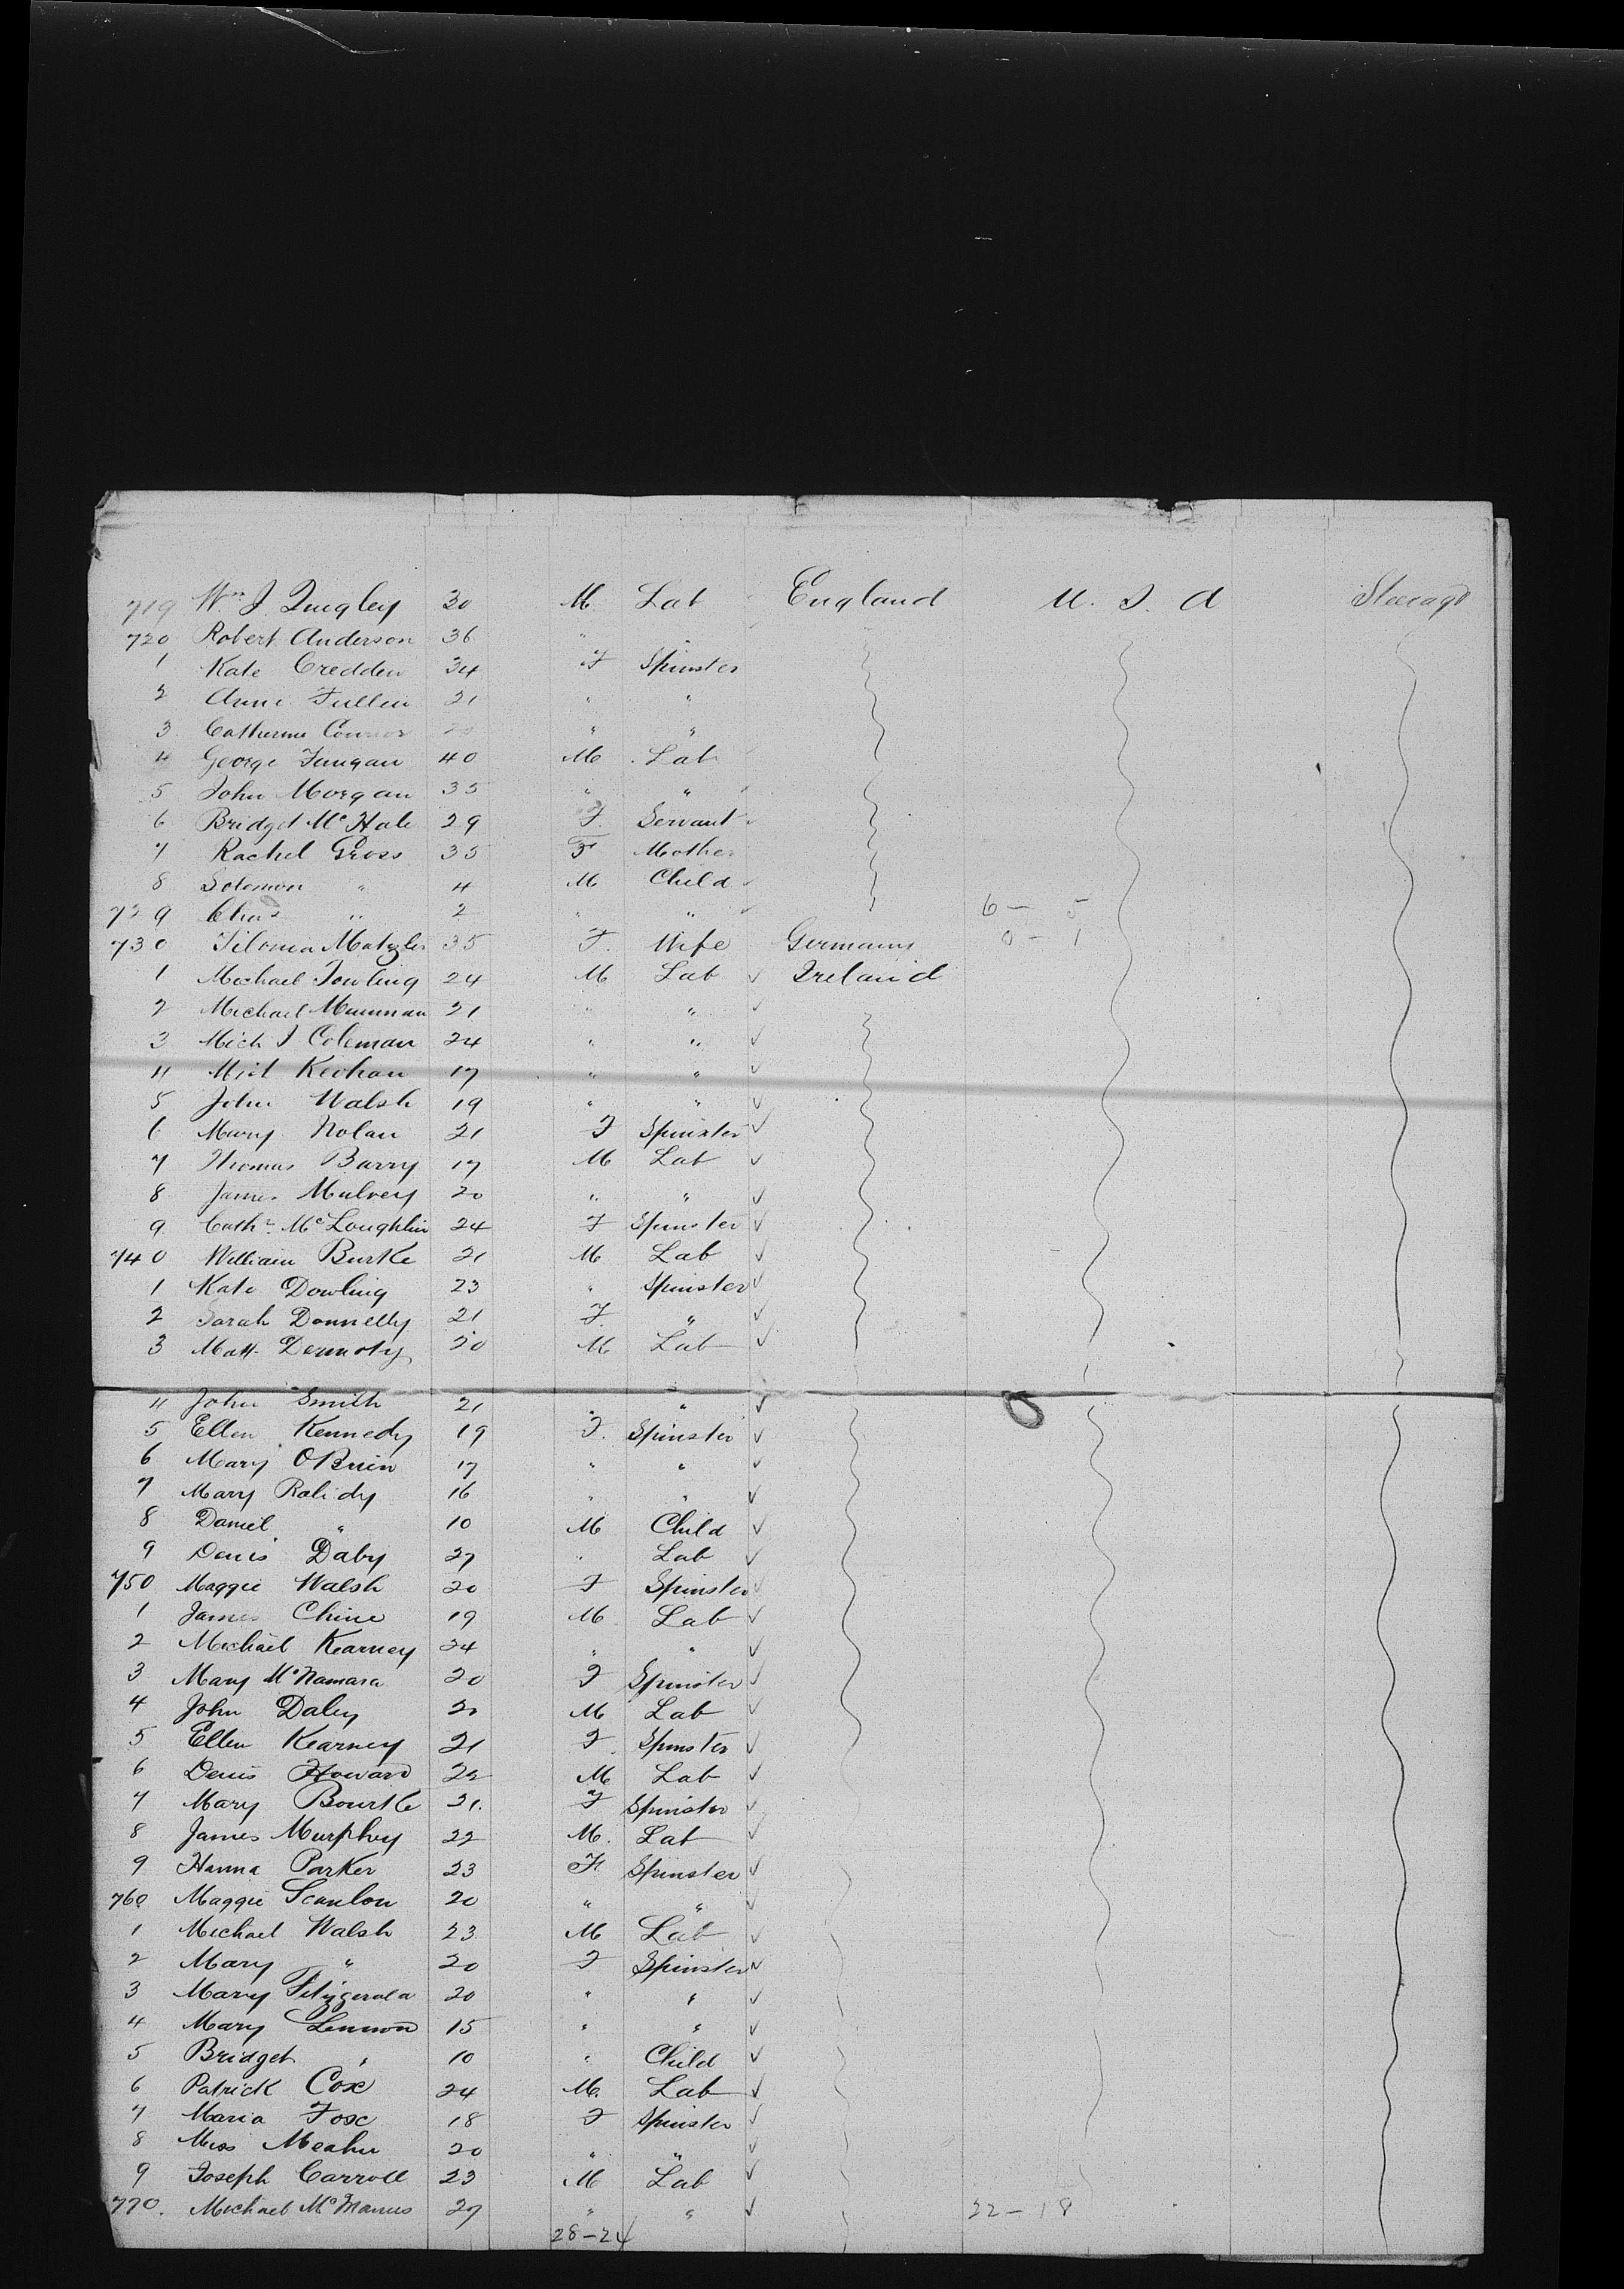 719 Wm J. Quigley 30 M Lab England U. S. A Steerage
720 Robert Anderson 36 "
1 Kate Credden 34 F Spinster
2 Anne Fullin 21 " "
3 Catherine Connor 20 " "
4 George Fungan 40 M Lab
5 John Morgan 35 " "
6 Bridget McHale 29 F. Servant
7 Rachel Gross 35 F Mother
8 Solomon " 4 M Child
729 Chas " 2 " " 6 – 5
730 Matzler 35 F. Wife Germany 0 – 1
1 Michael Dowling 24 M Lab Ireland
2 Michael 21 " "
3 Mich J Coleman 24 " "
4 Keohan 17 " "
5 John Walsh 19 " "
6 Mary Nolan 21 F Spinster
7 Thomas Barry 17 M Lab
8 James Mulvey 20 " "
9 Cathe McLoughlin 24 F Spinster
740 William Burke 21 M Lab
1 Kate Dowling 23 " Spinster
2 Sarah Donnelly 21 F. "
3 Matt Dermoty 20 M Lab
4 John Smith 21 " "
5 Ellen Kennedy 19 F. Spinster
6 Mary OBrien 17 " "
7 Mary Ralidy 16 " "
8 Daniel " 10 M Child
9 Denis Daby 27 " Lab
750 Maggie Walsh 20 F Spinster
1 James Chine 19 M Lab
2 Michael Kearney 24 " "
3 Mary McNamara 20 F Spinster
4 John Daley M Lab
5 Ellen Kearney 21 F. Spinster
6 Denis Howard 22 M Lab
7 Mary Bourke 21. F Spinster
8 James Murphey 22 M. Lab
9 Hanna Parker 23 F. Spinster
760 Maggie Scanlon 20 " "
1 Michael Walsh 23 M Lab
2 Mary " 20 F Spinster
3 Mary Fitzgerald 20 " "
4 Mary Lennon 15 " "
5 Bridget " 10 " Child
6 Patrick Cox 24 M. Lab
7 Maria Fox 18 F Spinster
8 Miss Meahu 20 " "
9 Joseph Carroll 23 M Lab
770. Michael McManus 27 " " 22 – 18
28 – 24